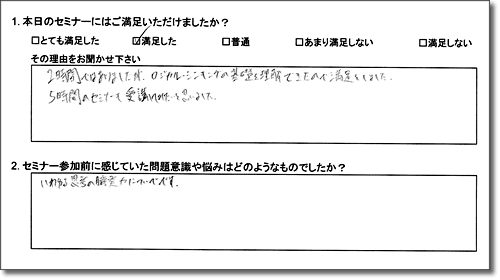 1. 本日のセミナーにはご満足いただけましたか？
□とても満足した ☑満足した □普通 □あまり満足しない □満足しない
その理由をお聞かせ下さい
2時間ではありましたが、ロジカルシンキングの基礎を理解できたので満足をしました。
5時間のセミナーも受講したいと思いました。
2. セミナー参加前に感じていた問題意識や悩みはどのようなものでしたか？
いわゆる思考の
です。